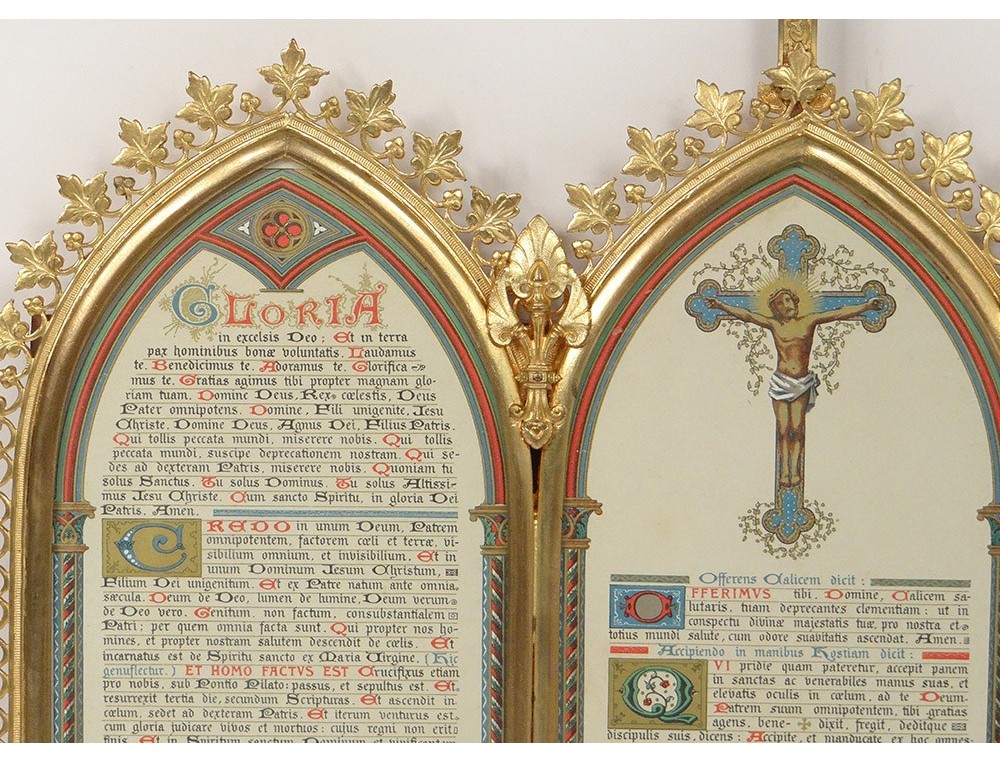 GLORIA
in excelsis Deo: Et in terra
pax hominibus bonæ voluntatis. Laudamus
te. Benedicimus te. Adoramus te. Glorifica
mus te. Gratias agimus tibi propter magnam glo-
riam tuam. Domine Deus, Rex cœlestis, Deus
Pater omnipotens. Domine, Fili unigenite, Jesu
Christe. Domine Deus, Agnus Dei, Filius Patris.
Qui tollis peccata mundi, miserere nobis. Qui tollis
peccata mundi, suscipe deprecationem nostram. Qui se-
des ad dexteram Patris, miserere nobis. Quoniam tu
solus Sanctus. Tu solus Dominus. Tu solus Altissi-
mus Jesu Christe. Cum sancto Spiritu, in gloria Dei
Patris. Amen.
CREDO in unum Deum, Patrem
omnipotentem, factorem cœli et terræ, vi-
sibilium omnium, et invisibilium. Et in
unum Dominum Jesum Christum,
Filium Dei unigenitum. Et ex Patre natum ante omnia
sæcula. Deum de Deo, lumen de lumine, Deum verum
de Deo vero. Genitum, non factum, consubstantialem
Patri; per quem omnia facta sunt. Qui propter nos ho-
mines, et propter nostram salutem descendit de cœlis. Et
incarnatus est de Spiritu sancto ex Maria Virgine, (Hic
genuflectitur.) ET HOMO FACTVS EST Crucifixus etiam
pro nobis, sub Pontio Pilato: passus, et sepultus est. Et
resurrexit tertia die, secundum Scripturas. Et ascendit in
cœlum, sedet ad dexteram Patris. Et iterum venturus est
cum gloria judicare vivos et mortuos: cujus regni non erit
finis. Et in Spiritum sanctum Dominum et vivificantem
Offerens Calicem dicit:
OFFERIMVS tibi, Domine, Calicem sa-
lutaris, tuam deprecantes clementiam: ut in
conspectu divinæ majestatis tuæ, pro nostra et
totius mundi salute, cum odore suavitatis ascendat. Amen.
Accipiendo in manibus Hostiam dicit:
QVI pridie quam pateretur, accepit panem
in sanctas ac venerabiles manus suas, et
elevatis oculis in cœlum, ad te Deum
Patrem suum omnipotentem, tibi gratias
agens, bene ✠ dixit, fregit, deditque
discipulis suis, dicens: Accipite, et manducate ex hoc omnes